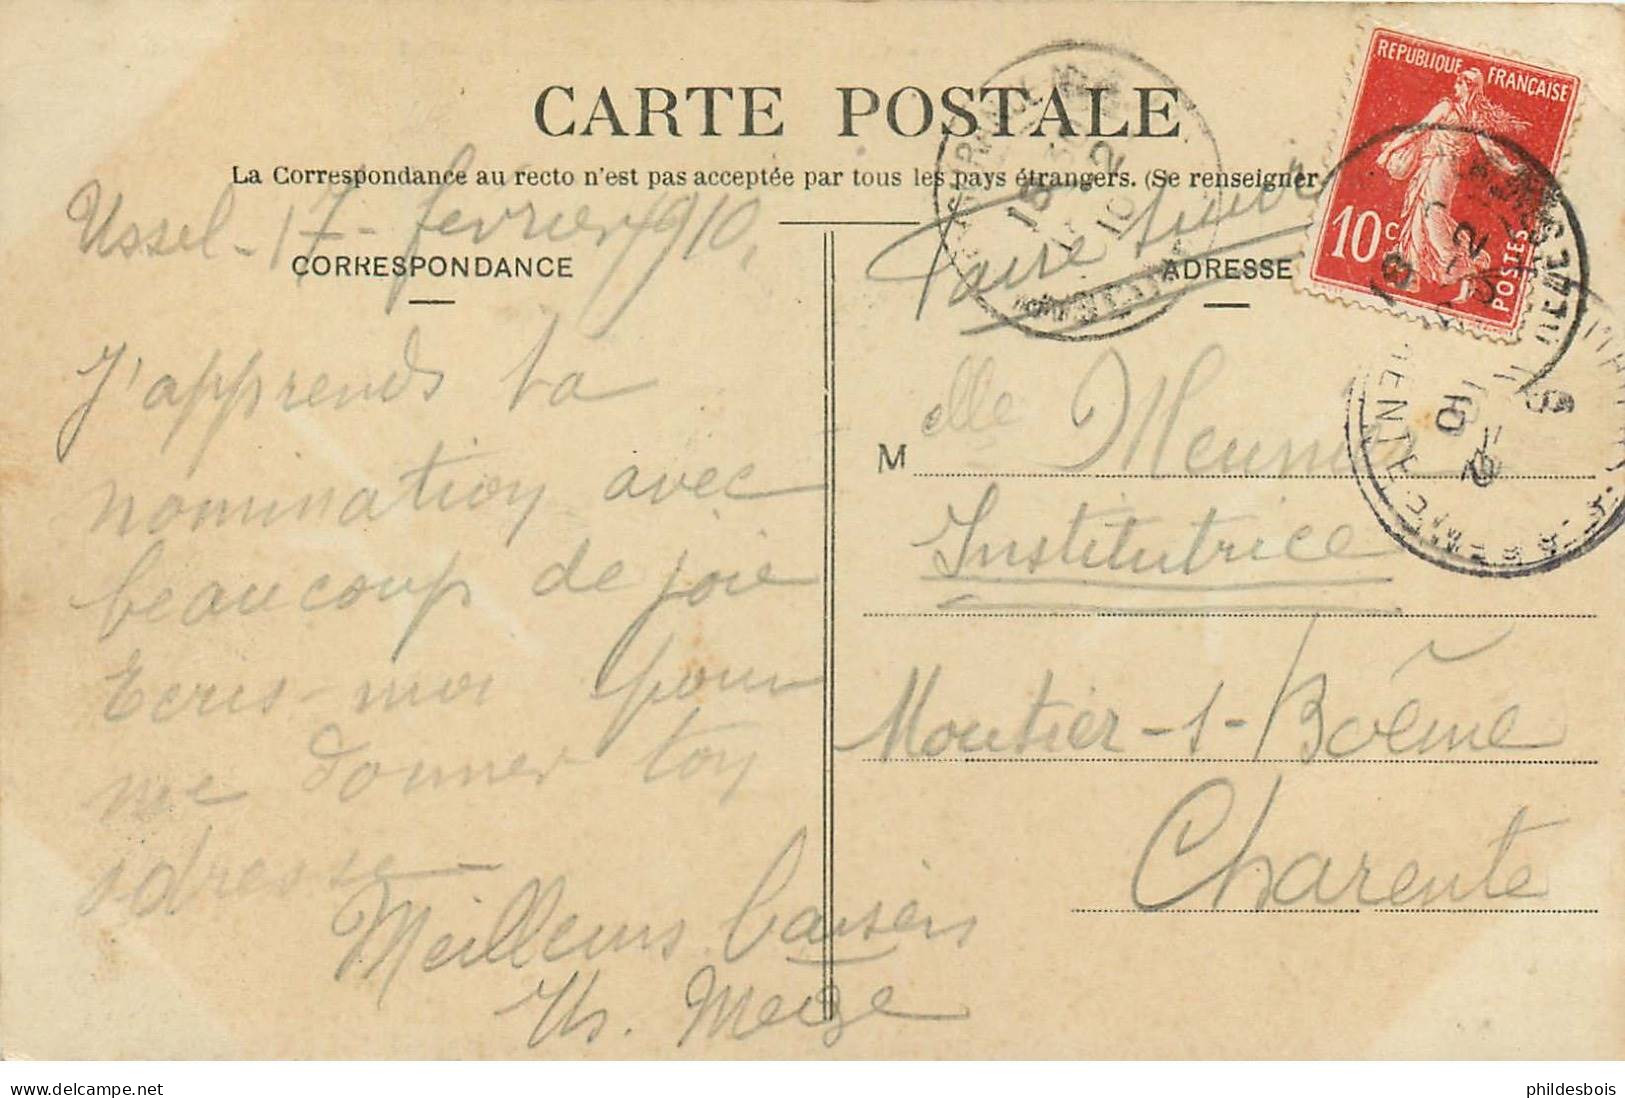 CARTE POSTALE
La Correspondance au recto n'est pas acceptée par tous les pays étrangers. (Se renseigner
REPUBLIQUE FRANÇAISE
10 c
POSTES
Ussel - 17 - fevrier 1910.
CORRESPONDANCE
J'apprends ta
nomination avec
beaucoup de joie
Ecris-moi pour
me donner ton
adresse -
Meilleurs baisers
Faire suivre
ADRESSE
Melle Meunier
Institutrice
Moutier-s-Boême
Charente
delcampe.net
phildesbois